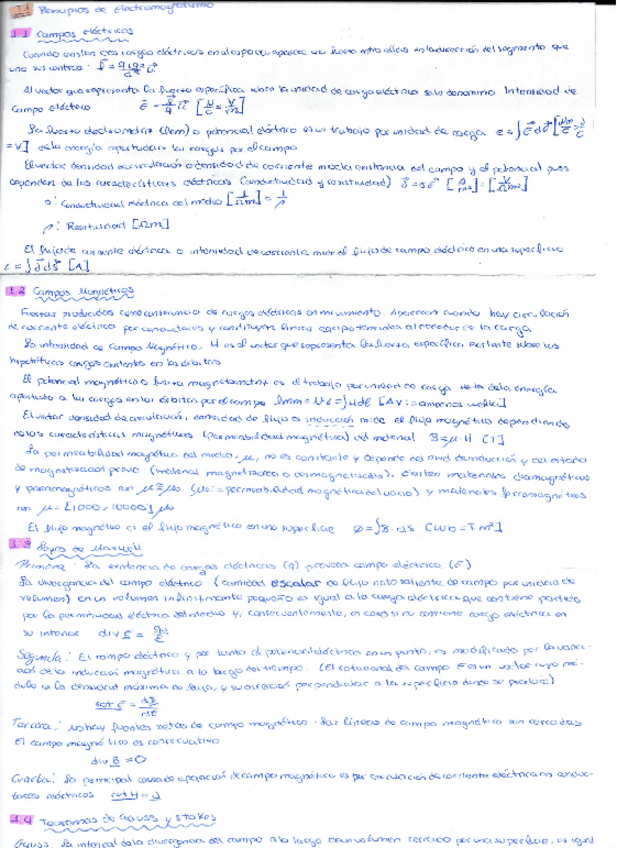 1. Principios de Electromagnetismo
1.1 Campos eléctricos
Cuando existen dos cargas eléctricas en el espacio, aparece una fuerza entre ellas en la dirección del segmento que
une sus centros.
Al vector que representa la fuerza específica sobre la unidad de carga eléctrica se le denomina Intensidad de
Campo eléctrico
La fuerza electromotriz (fem) o potencial eléctrico es un trabajo por unidad de carga
= V] de la energía aportada a las cargas por el campo
El vector densidad de circulación o densidad de corriente mezcla la existencia del campo y el potencial pues
dependen de las características eléctricas (conductividad y resistividad)
σ: Conductividad eléctrica del medio
ρ: Resistividad [Ωm]
El flujo de corriente eléctrica o intensidad de corriente mide el flujo de campo eléctrico en una superficie
[A]
1.2 Campos Magnéticos
Fuerzas producidas como consecuencia de cargas eléctricas en movimiento. Aparecen cuando hay circulación
de corriente eléctrica por conductores y constituyen líneas equipotenciales alrededor de la carga.
La intensidad de Campo Magnético, H es el vector que representa la fuerza específica existente sobre las
hipotéticas cargas existentes en las órbitas
El potencial magnético o fuerza magnetomotriz es el trabajo por unidad de carga de la energía
aportada a las cargas en las órbitas por el campo [Av: amperios vuelta]
El vector densidad de circulación, densidad de flujo o inducción mide el flujo magnético dependiendo
de las características magnéticas (permeabilidad magnética) del material B = μ·H [T]
La permeabilidad magnética del medio, μ, no es constante y depende del nivel de inducción y del estado
de magnetización previo (material magnetizado o desmagnetizado). Existen materiales diamagnéticos
y paramagnéticos con μ≅μ₀ (μ₀: permeabilidad magnética del vacío) y materiales ferromagnéticos
con μ = [1000, 10000] μ₀
El flujo magnético es el flujo magnético en una superficie Φ=∫B·ds [Wb=T·m²]
1.3 Leyes de Maxwell
Primera: La existencia de cargas eléctricas (q) provoca campo eléctrico (E)
La divergencia del campo eléctrico (cantidad escalar de flujo neto saliente de campo por unidad de
volumen) en un volumen infinitamente pequeño es igual a la carga eléctrica que contiene partido
por la permitividad eléctrica del medio y, consecuentemente, es cero si no contiene carga eléctrica en
su interior div E =
Segunda: El campo eléctrico y por tanto el potencial eléctrico en un punto, es modificado por la varia-
ción de la inducción magnética a lo largo del tiempo. (El rotacional del campo E es un vector cuyo mó-
dulo es la densidad máxima de flujo, y su dirección perpendicular a la superficie donde se produce)
rot E =
Tercera: No hay fuentes netas de campo magnético. Las líneas de campo magnético son cerradas
El campo magnético es conservativo
div B = 0
Cuarta: La principal causa de aparición de campo magnético es por circulación de corriente eléctrica en conduc-
tores eléctricos rot H = J
1.4 Teoremas de Gauss y Stokes
Gauss. La integral de la divergencia del campo a lo largo de un volumen cerrado por una superficie, es igual